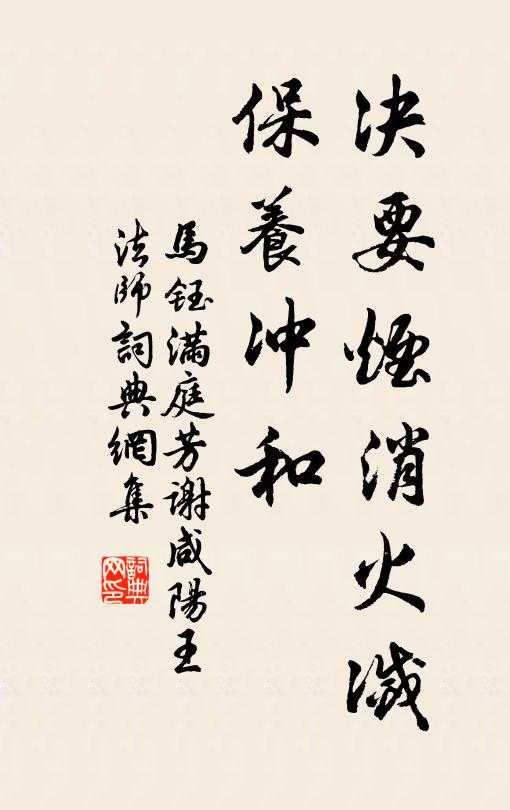 决要煙消火滅
保養冲和
馬鈺满庭芳謝咸陽王
法師詞典網集
詞典网印